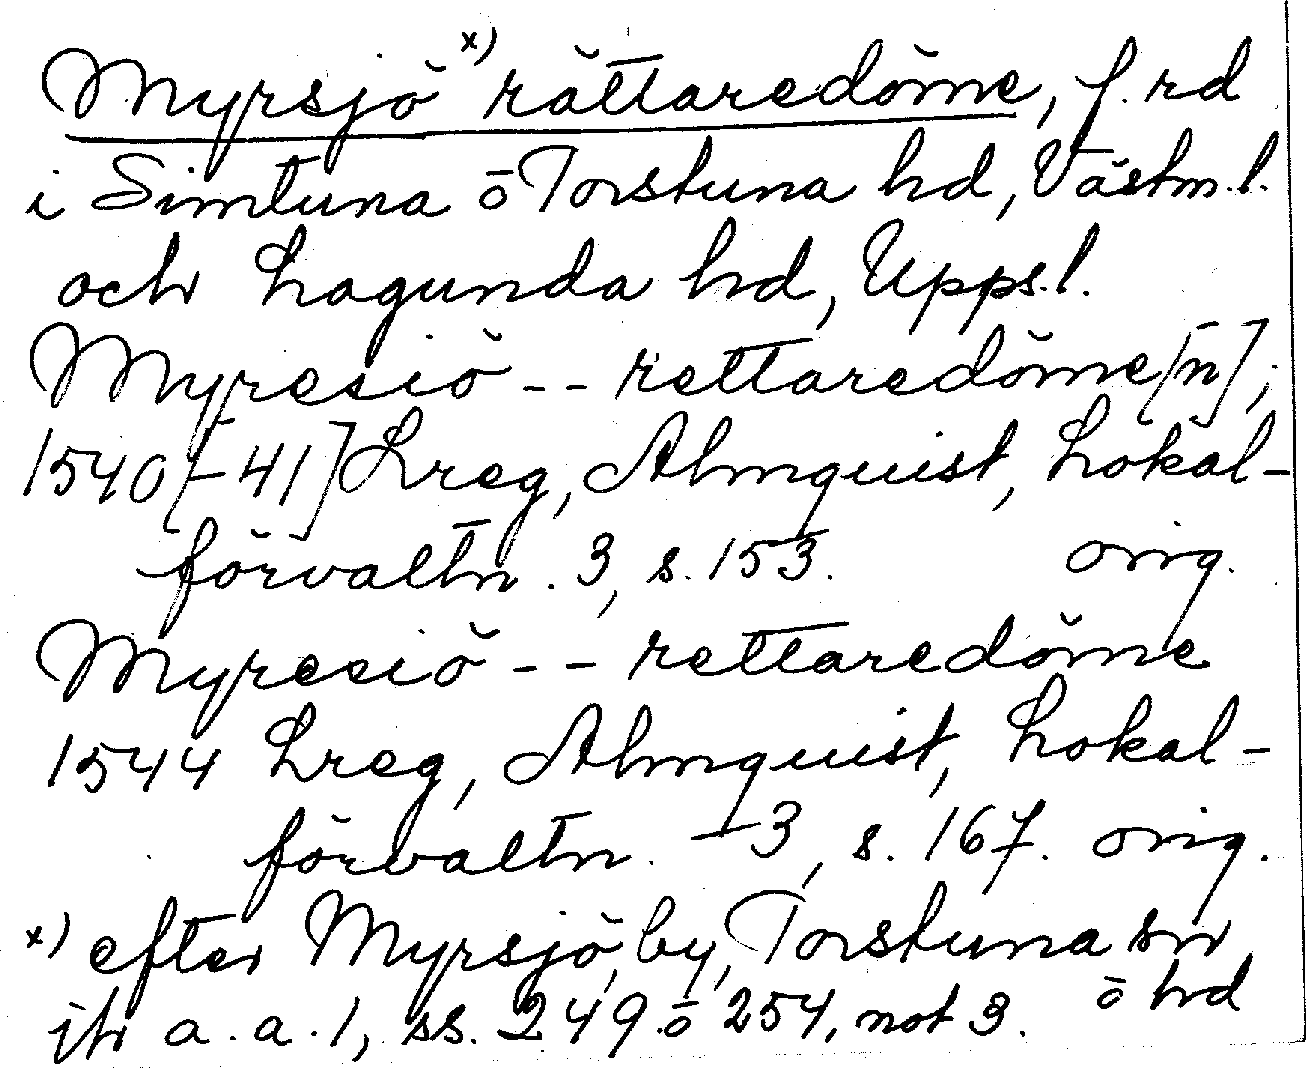 Myrsjö x) rättaredöme, f. rd
i Simtuna o Torstuna hd, Västm. l.
och Lagunda hd, Upps. l.
Myresiö -- rettaredöme[n],
1540[-41] Lreg, Almquist, Lokal-
förvaltn. 3, s. 153. orig.
Myresiö -- rettaredöme
1544 Lreg, Almquist, Lokal-
förvaltn. 3, s. 167. orig.
x) efter Myrsjö, by, Torstuna sn
o hd
jfr a. a. 1, ss. 249 o 254, not 3.